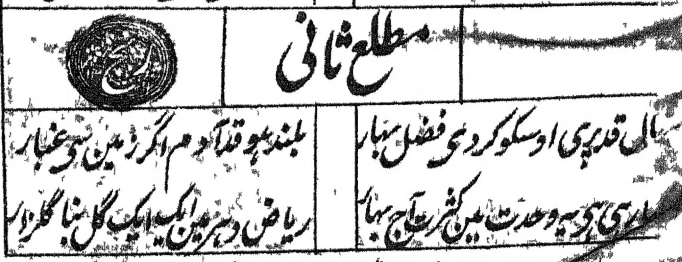 مطلع ثانی
قد پری اوسکو کردی فضل بہار بلند ہو قد آدم اگر زمین سی غبار
ہی یہ وحدت مین کثرت آج بہار ریاض دہر مین ایک ایک گل بنا گلزار